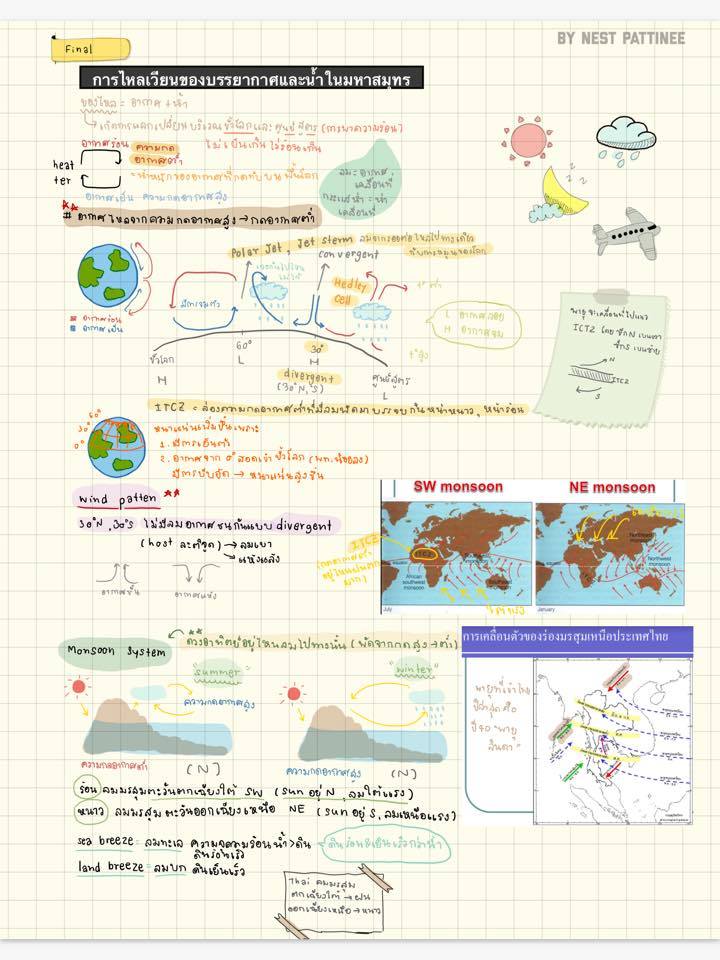 BY NEST PATTINEE
Final
การไหลเวียนของบรรยากาศและน้ำในมหาสมุทร
ของไหล = อากาศ + น้ำ
เกิดการแลกเปลี่ยน บริเวณ ขั้วโลก และ ศูนย์สูตร (การพาความร้อน)
อากาศร้อน ความกด
อากาศต่ำ
ไม่เย็นเกิน ไม่ร้อนเกิน
heat
ter
= น้ำหนักของอากาศที่กดทับ บน พื้นโลก
อากาศเย็น ความกดอากาศสูง
ลม = อากาศ
เคลื่อนที่
กระแสน้ำ = น้ำ
เคลื่อนที่
** # อากาศไหลจากความกดอากาศสูง → กดอากาศต่ำ
Polar Jet, Jet sterm
convergent
Hedley
Cell
มีการจมตัว
t° ต่ำ
t° สูง
L อากาศลอย
H อากาศจม
อากาศร้อน
อากาศเย็น
ขั้วโลก
H
60°
L
30°
H
divergent
(30°N,S)
ศูนย์สูตร
L
พายุจะเคลื่อนที่ไปแนว
ICTZ โดย ซีกN เบนขวา
ซีกS เบนซ้าย
N
ICTZ
S
ITCZ = ร่องความกดอากาศต่ำที่มีลมพัดมาบรรจบกัน หน้าหนาว, หน้าร้อน
60°
30°
0°
หนาแน่นเพิ่มขึ้นเพราะ
1. มีการเย็นตัว
2. อากาศจาก 0° สอดเข้า ขั้วโลก (พท.น้อยลง)
มีการบีบอัด → หนาแน่นสูงขึ้น
wind patten **
30°N, 30°S ไม่มีลม อากาศชนกันแบบ divergent
(host ละติจูด) → ลมเบา
→ แห้งแล้ง
อากาศชื้น
อากาศแห้ง
SW monsoon
NE monsoon
ITCZ
ITCZ
African
southwest
monsoon
Southwest
monsoon
July
Northeast
monsoon
Northwest
monsoon
January
Monsoon System
** ดวงอาทิตย์อยู่ไหนลมไปทางนั้น (พัดจากกดสูง → ต่ำ)
"summer"
ความกดอากาศสูง
ความกดอากาศต่ำ
(N)
"winter"
ความกดอากาศสูง
(N)
การเคลื่อนตัวของร่องมรสุมเหนือประเทศไทย
พายุที่เข้าไทย
ปีล่าสุดคือ
ร้อน ลมมรสุมตะวันตกเฉียงใต้ SW (sun อยู่ N, ลมใต้แรง)
หนาว ลมมรสุม ตะวันออกเฉียงเหนือ NE (sun อยู่ S, ลมเหนือแรง)
sea breeze = ลมทะเล ความจุความร้อน น้ำ > ดิน
ดินร้อนเร็ว
ดินร้อน & เย็นเร็วกว่าน้ำ
land breeze = ลมบก ดินเย็นเร็ว
Thai ลมมรสุม
ตกเฉียงใต้ → ฝน
ออกเฉียงเหนือ → หนาว